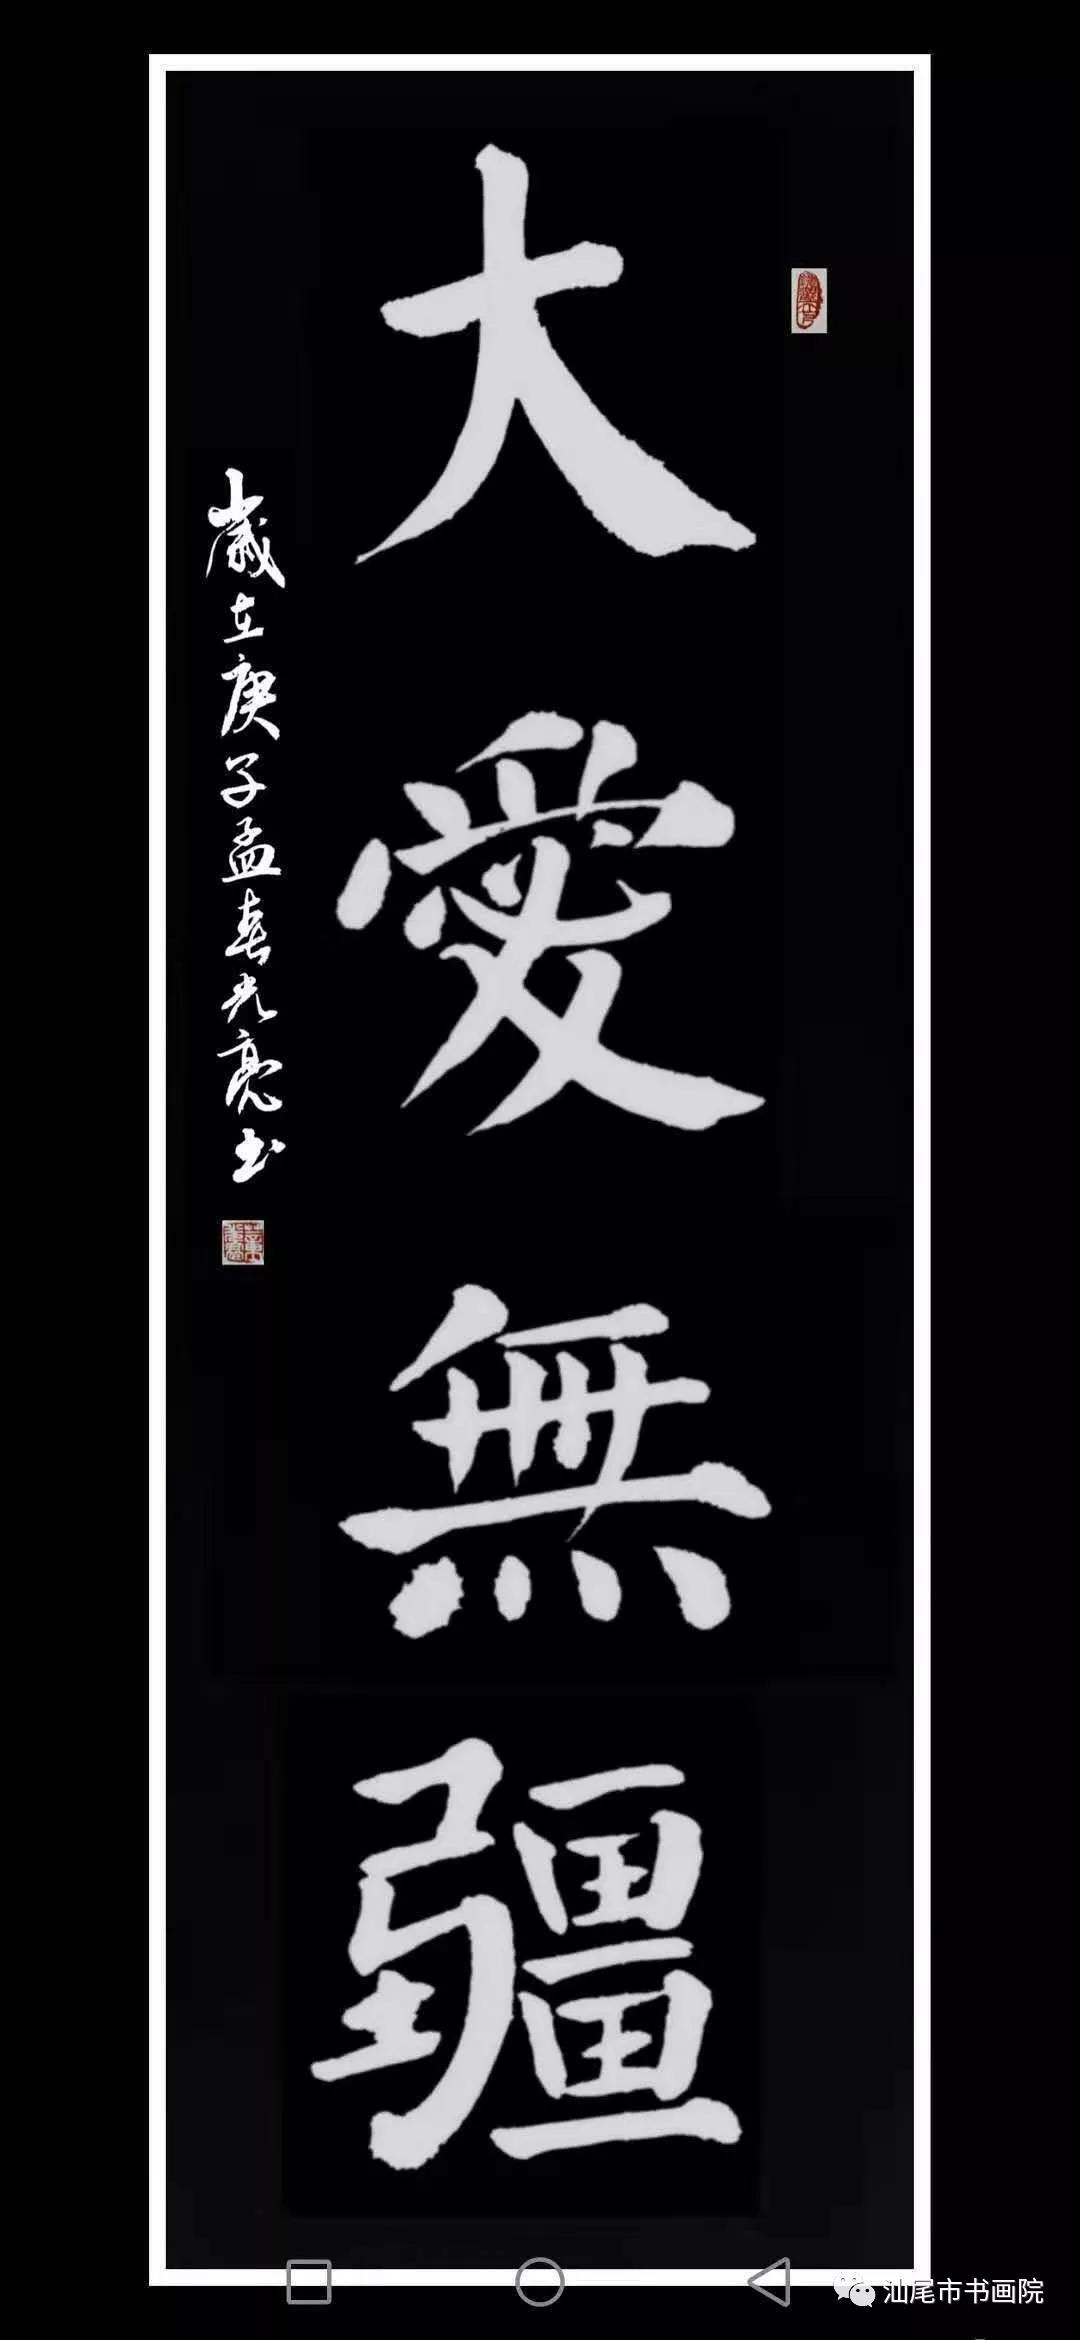 大愛無疆
歲在庚子孟春光亮书
汕尾市书画院